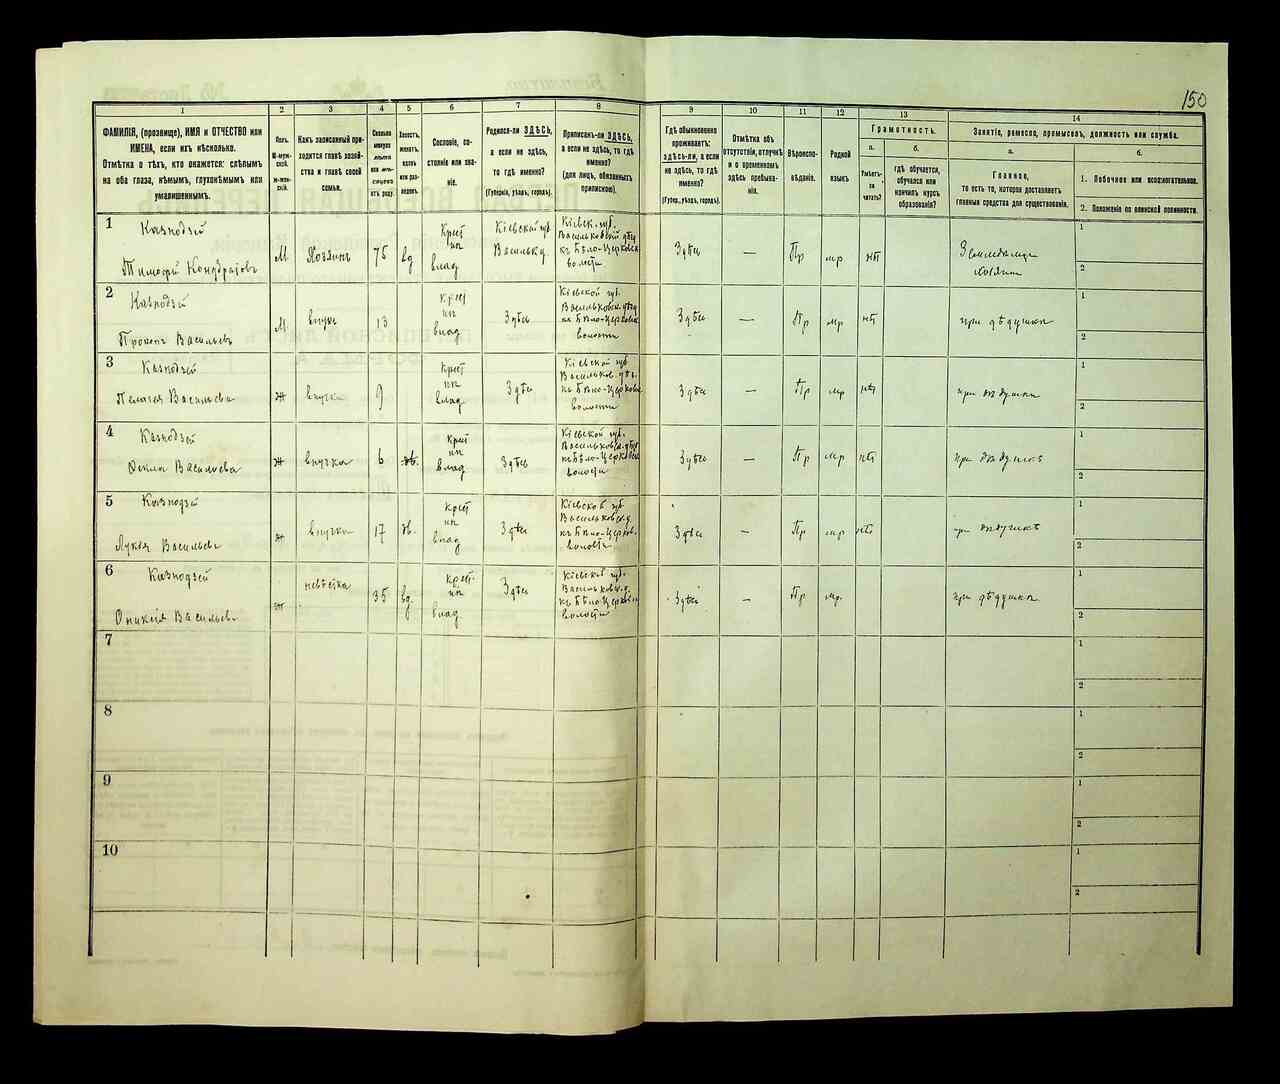 150
1
2
3
4
5
6
7
8
9
10
11
12
13
14
ФАМИЛІЯ, (прозвище), ИМЯ и ОТЧЕСТВО или
ИМЕНА, если ихъ нѣсколько.
Отмѣтка о тѣхъ, кто окажется: слѣпымъ
на оба глаза, нѣмымъ, глухонѣмымъ или
умалишеннымъ.
Полъ.
М-муж-
ской.
Ж-жен-
скій.
Какъ записанный при-
ходится главѣ хозяй-
ства и главѣ своей
семьи.
Сколько
минуло
лѣтъ
или мѣ-
сяцевъ
отъ роду
Холостъ,
женатъ,
вдовъ
или раз-
веденъ.
Сословіе, со-
стояніе или зва-
ніе.
Родился-ли ЗДѢСЬ,
а если не здѣсь,
то гдѣ именно?
(Губернія, уѣздъ, городъ).
Приписанъ-ли ЗДѢСЬ,
а если не здѣсь, то гдѣ
именно?
(для лицъ, обязанныхъ
припискою).
Гдѣ обыкновенно
проживаетъ:
здѣсь-ли, а если
не здѣсь, то гдѣ
именно?
(Губер., уѣздъ, городъ).
Отмѣтка объ
отсутствіи, отлучкѣ
и о временномъ
здѣсь пребыва-
ніи.
Вѣроиспо-
вѣданіе.
Родной
языкъ.
Грамотность.
а.
Умѣетъ-
ли
читать?
б.
гдѣ обучается,
обучался или
кончилъ курсъ
образованія?
Занятіе, ремесло, промыселъ, должность или служба.
а.
Главное,
то есть то, которое доставляетъ
главныя средства для существованія.
б.
1. Побочное или вспомогательное.
2. Положеніе по воинской повинности.
1
Казнодзей
Тимофй Кондратовъ
М
Хозяинъ
75
вд
Крест
влад
Кіевской губ.
Васильк у.
Кіевск. губ.
къ Бѣло-Церковск
волости.
Здѣсь
—
Пр
мр
нѣт
хозяинъ
1
2
2
Казнодзей
Прокопъ Васильевъ
М
внукъ
13
Крест
влад.
Здѣсь
Кіевской губ.
Васильковск. уѣзд
къ Бѣло-Церковск
волости
Здѣсь
—
Пр
мр
нѣт
при дѣдушкѣ
1
2
3
Казнодзей
Пелагея Васильева
Ж
внучка
9
Крест
влад.
Здѣсь
Кіевской губ
Васильков. уѣз.
къ Бѣло-Церковск
волости
Здѣсь
—
Пр
мр
нѣт
при дѣдушкѣ
1
2
4
Казнодзей
Васильева
Ж
внучка
6
Крест
влад.
Здѣсь
Кіевской губ.
Васильковск. уѣзд
къ Бѣло-Церковск
волости
Здѣсь
—
Пр
мр
нѣт
при дѣдушкѣ
1
2
5
Казнодзей
Лукія Васильева
Ж
внучка
17
дѣв.
Крест
влад.
Здѣсь
Кіевской губ
Васильковск. у.
къ Бѣло-Церков.
волости
Здѣсь
—
Пр
мр
нѣт
при дѣдушкѣ
1
2
6
Казнодзей
Васильева
Ж
невѣстка
35
вд.
Крест.
влад.
Здѣсь
Кіевской губ.
Васильковск. у.
къ Бѣло-Церковск
волости
Здѣсь
—
Пр
мр.
при дѣдушкѣ
1
2
7
1
2
8
1
2
9
1
2
10
1
2